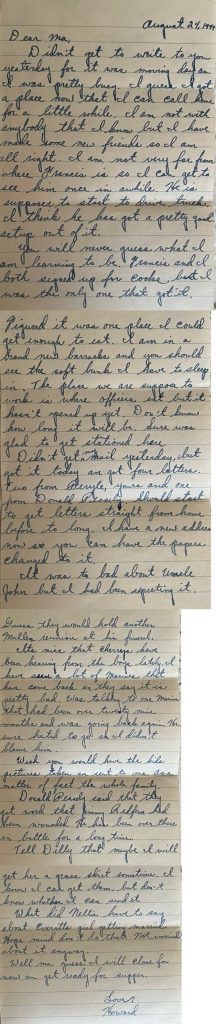 August 24, 1944
Dear Ma,
Didn't get to write to you
yesterday for it was moving day an
I was pretty busy. I guess I got
a place now that I can call home
for a little while. I am not with
anybody that I know but I have
made some new friends so I am
all right. I am not very far from
where Francis is so I can get to
see him once in awhile. He is
supposed to start to drive truck.
I think he has got a pretty good
setup out of it.
You will never guess what I
am learning to be. Francis and I
both signed up for cooks, but I
was the only one that got it.
Figured it was one place I could
get enough to eat. I am in a
brand new barracks and you should
see the soft bunk I have to sleep
in. The place we are suppose to
work is where officers eat but it
hasn't opened up yet. Don't know
how long it will be. Sure was
glad to get stationed here.
Didn't get mail yesterday, but
got it today an got four letters.
Two from Cherryle, yours and one
from Donald. Should start
to get letters straight from home
before to long. I have a new address
now so you can have the papers
changed to it.
It was to bad about Uncle
John but I had been expecting it.
Guess they would hold another
Mullen reunion at his funeral.
Its nice that Cherrys have
been hearing from the boys lately. I
have seen a lot of Marines that
have come back an they say it is
pretty bad. Was talking to one Marine
that had been over twenty nine
months and was going back again. He
sure hated to go an I didn't
blame him.
Wish you would have the kids
pictures taken an sent to me. As a
matter of fact the whole family.
Donald said that they
got word that Jimmy had
been wounded. He has been over there
in battle for a long time.
Tell Dilly that maybe I will
get her a grass skirt sometime. I
know I can get them, but don't
know whether I can send it.
What did Nellie have to say
about Everetts girl getting married.
Hope mind don't do that. Not worried
about it anyway.
Well ma guess I will close for
now an get ready for supper.
Love
Howard